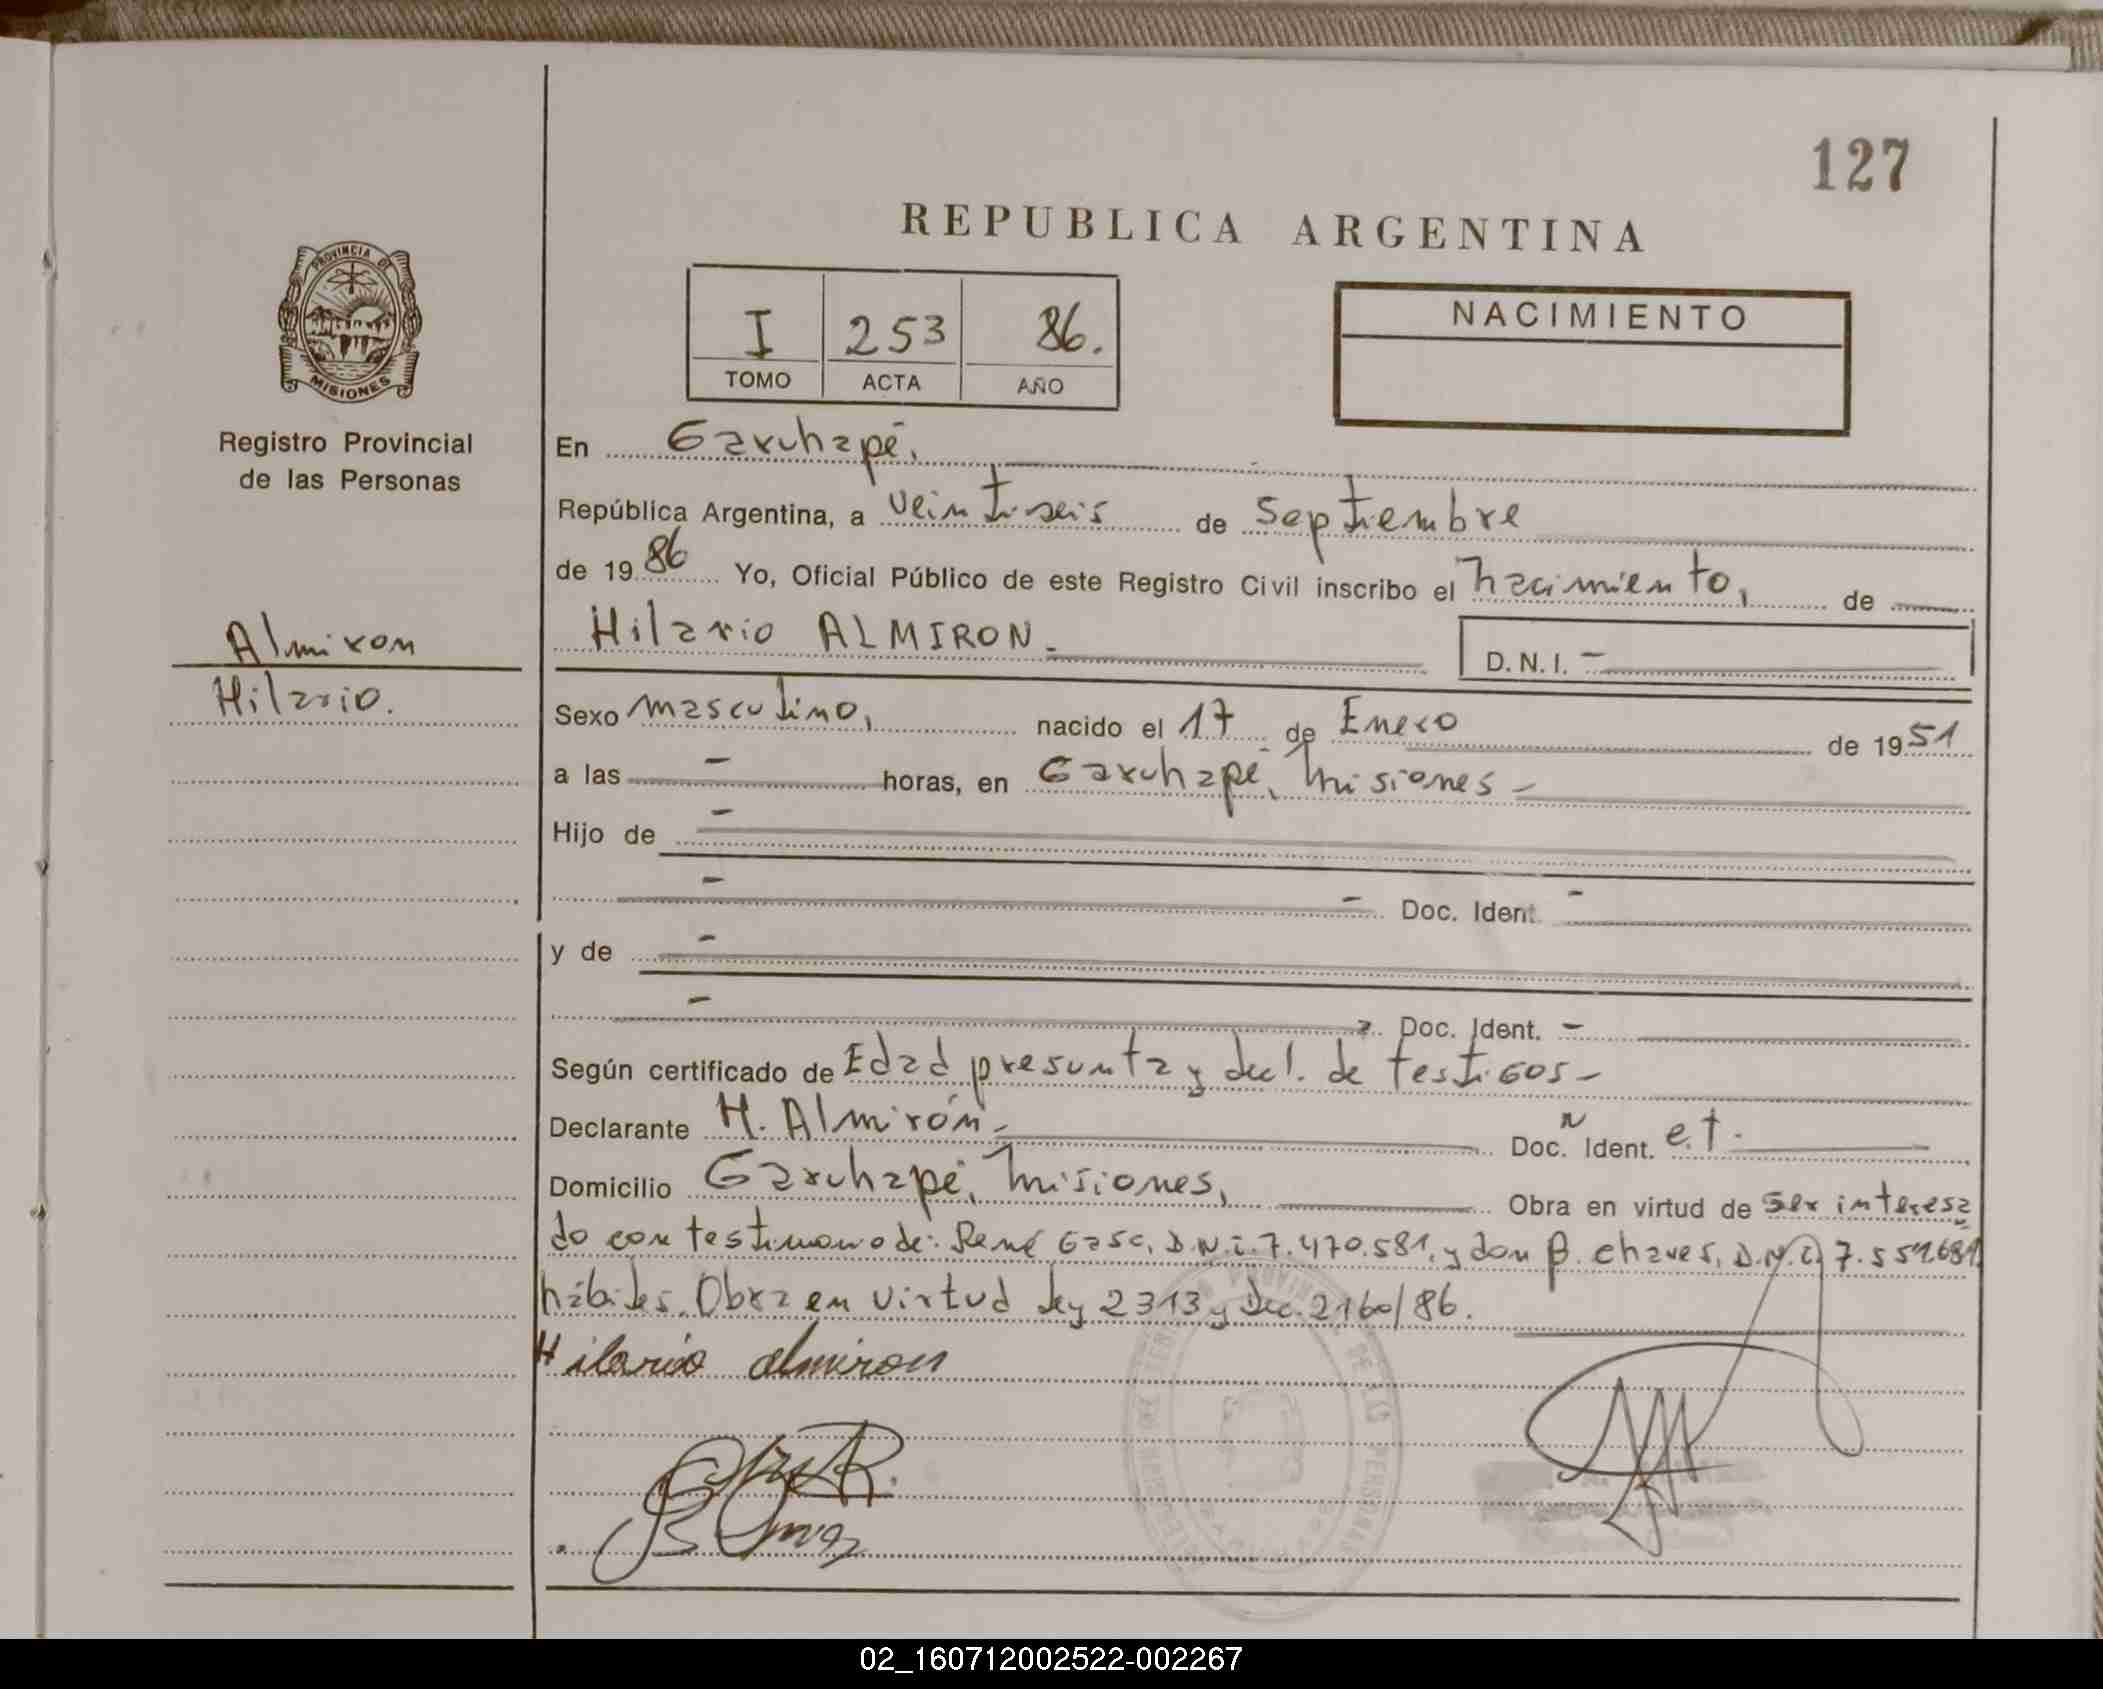 127
REPUBLICA ARGENTINA
PROVINCIA DE
MISIONES
I 253 86.
TOMO ACTA AÑO
NACIMIENTO
Registro Provincial
de las Personas
En Garuhapé,
República Argentina, a veintiseis de Septiembre
de 1986 Yo, Oficial Público de este Registro Civil inscribo el nacimiento, de
Almiron
Hilario ALMIRON.
D.N.I. -
Hilario.
Sexo masculino, nacido el 17 de Enero de 1951
a las - horas, en Garuhapé, Misiones -
Hijo de -
- - Doc. Ident. -
y de -
- Doc. Ident. -
Según certificado de Edad presunta y decl. de testigos -
Declarante H. Almirón - Doc. Ident. e.t.
Domicilio Garuhapé, Misiones, Obra en virtud de ser interesa
do con testimonio de: René D.N.I. 7.470.581, y don B. chaves, D.N.I. 7.551.681
hábiles. Obra en virtud ley 2313 y Dec. 2160/86.
Hilario almiron
02_160712002522-002267